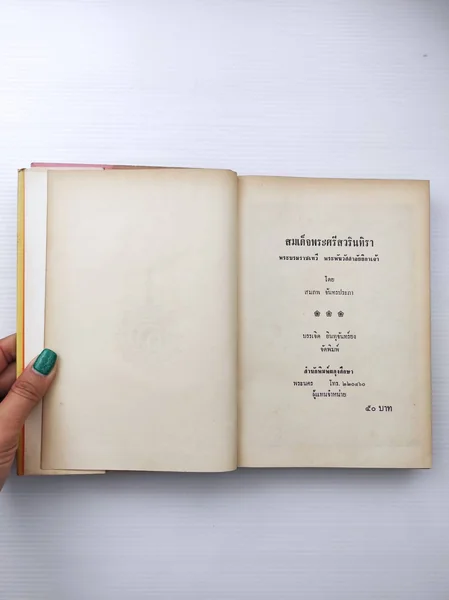 สมเด็จพระศรีสวรินทิรา
พระบรมราชเทวี พระพันวัสสาอัยยิกาเจ้า
โดย
สมภพ จันทรประภา
บรรเจิด อินทุจันทร์ยง
จัดพิมพ์
สำนักพิมพ์ผดุงศึกษา
พระนคร โทร. ๒๒๐๔๖๐
ผู้แทนจำหน่าย
๕๐ บาท